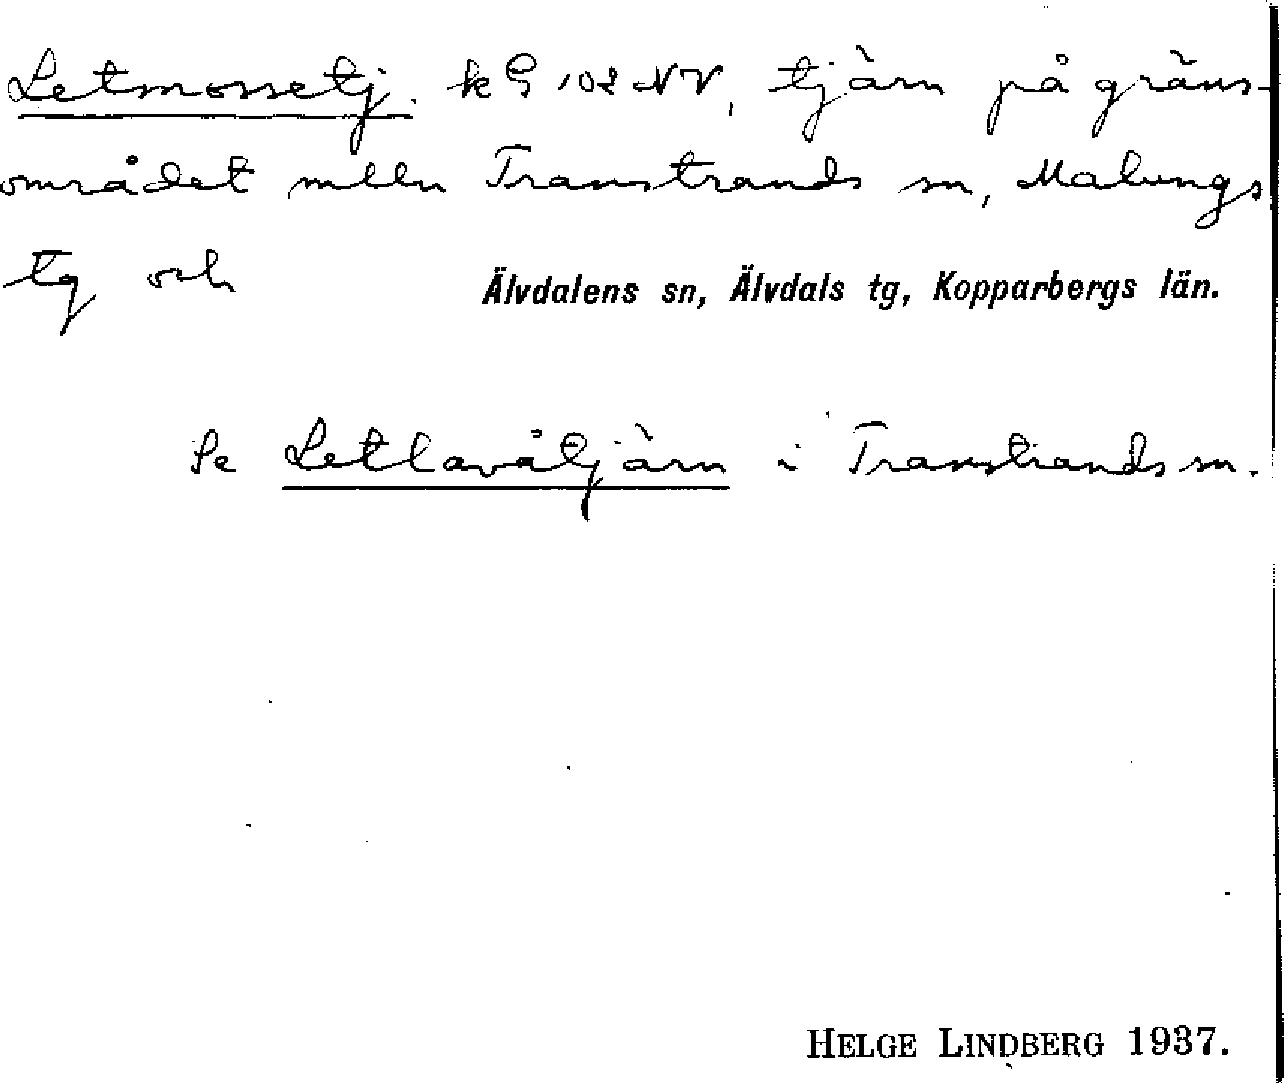 Letmossetj. kG 102 NV, tjärn på gräns-
området mlln Transtrands sn, Malungs
tg och Älvdalens sn, Älvdals tg, Kopparbergs län.
Se Letlavåtjärn i Transtrands sn.
HELGE LINDBERG 1937.